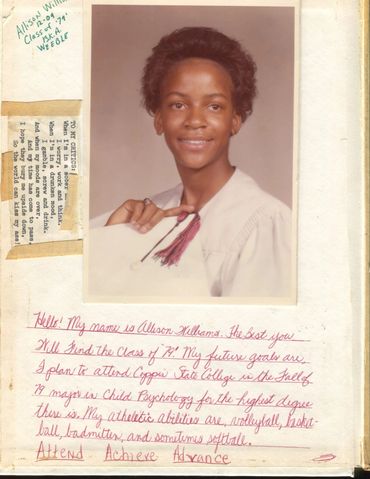 Allison Willia
12-04
Class of '79'
BK.A.
WEEBLE
TO MY CRITICS:
When I'm in a sober mood
I worry, work and think.
When I'm in a drunken mood,
I gamble, screw and drink.
And when my moods are over,
And my time has come to pass,
I hope they bury me upside down,
So the world can kiss my ass!
Hello! My name is Allison Williams. The Best you
Will Find the Class of '79.' My future goals are
I plan to attend Coppin State College in the Fall of
79 major in Child Psychology for the highest degree
there is. My atheletic abilities are, volleyball, basket-
ball, badmitten, and sometimes softball.
Attend Achieve Advance